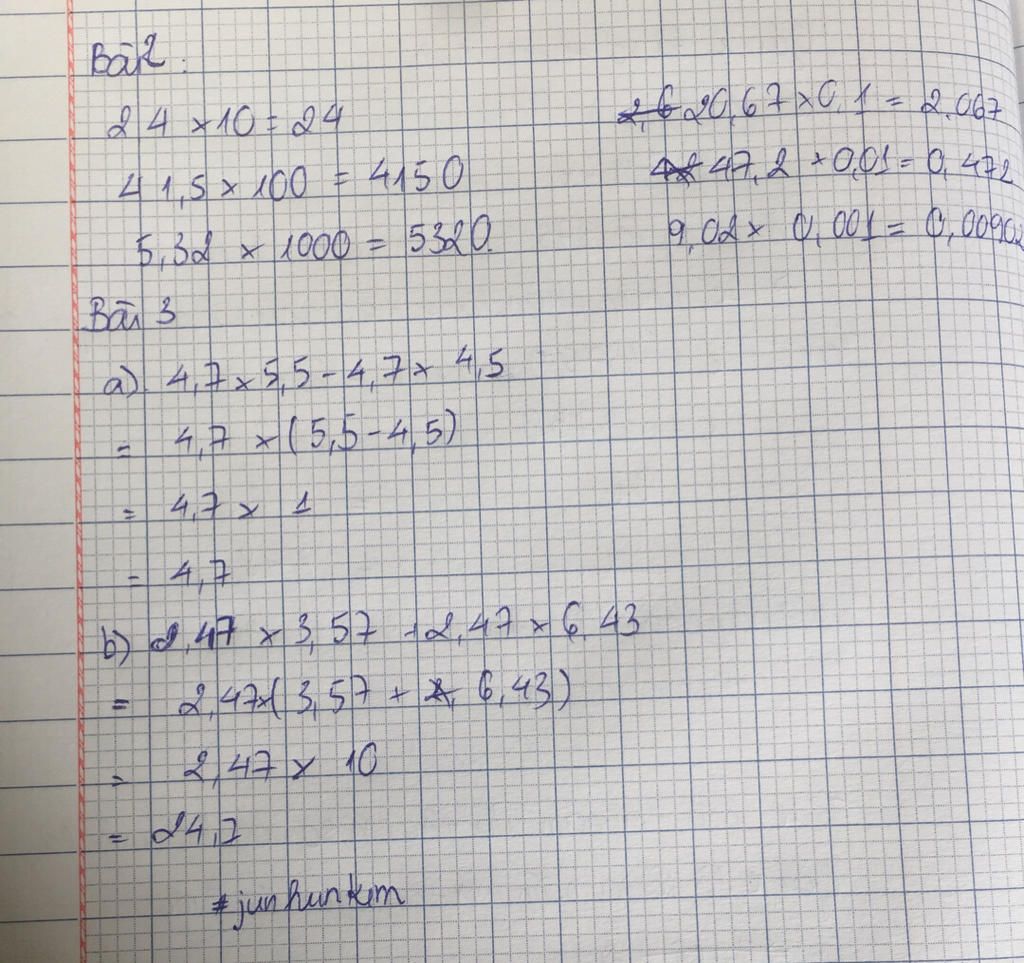 Bài 2:
24 × 10 = 24
41,5 × 100 = 4150
5,32 × 1000 = 5320.
20,67 × 0,1 = 2,067
47,2 × 0,01 = 0,472
9,02 × 0,001 = 0,00902
Bài 3
a) 4,7 × 5,5 - 4,7 × 4,5
= 4,7 × (5,5 - 4,5)
= 4,7 × 1
= 4,7
b) 2,47 × 3,57 + 2,47 × 6,43
= 2,47 × (3,57 + 6,43)
= 2,47 × 10
= 24,7
#junhunkim